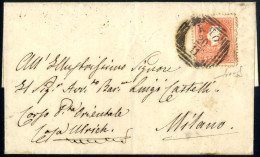 All' Illustrissimo Signore
Il Sig. Avv. Bar. Luigi Castelli
Corso P.ta Orientale
Casa Ulrich
Milano.